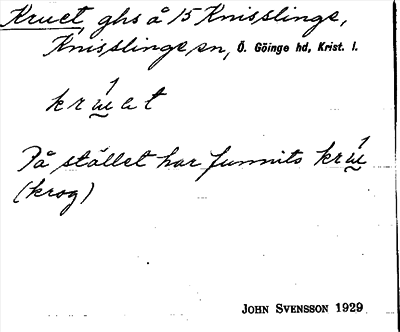 Kruet ghs å 15 Knisslinge,
Knisslinge sn, Ö. Göinge hd, Krist. l.
krɯ́et
På stället har funnits krɯ́
(krog)
JOHN SVENSSON 1929